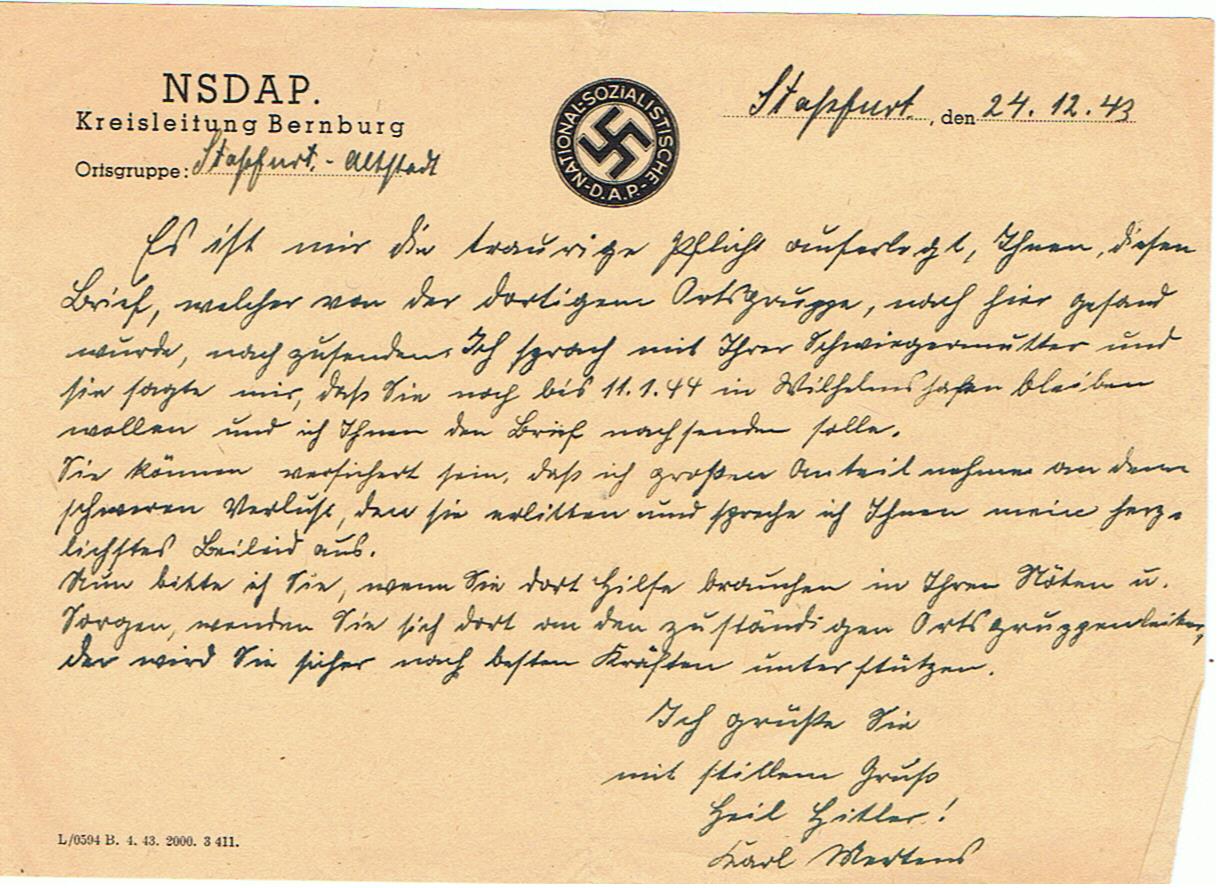 NSDAP.
Kreisleitung Bernburg
Ortsgruppe: Staßfurt.-Altstadt
NATIONAL-SOZIALISTISCHE-D.A.P.
Staßfurt, den 24.12.43
Es ist mir die traurige Pflicht auferlegt, Ihnen, diesen
Brief, welcher von der dortigem Ortsgruppe, nach hier gesand
wurde, nachzusenden. Ich sprach mit Ihrer Schwiegermutter und
sie sagte mir, daß Sie noch bis 11.1.44 in Wilhelmshafen bleiben
wollen und ich Ihnen den Brief nachsenden solle.
Sie können versichert sein, daß ich großen Anteil nehme an dem
schweren Verlust, den sie erlitten und spreche ich Ihnen mein herz-
lichstes Beileid aus.
Nun bitte ich Sie, wenn Sie dort Hilfe brauchen in Ihren Nöten u.
Sorgen, wenden Sie sich dort an den zuständigen Ortsgruppenleiter,
der wird Sie sicher nach besten Kräften unterstützen.
Ich grüße Sie
mit stillem Gruß
Heil Hitler!
Karl Mertens
L/0594 B. 4. 43. 2000. 3 411.